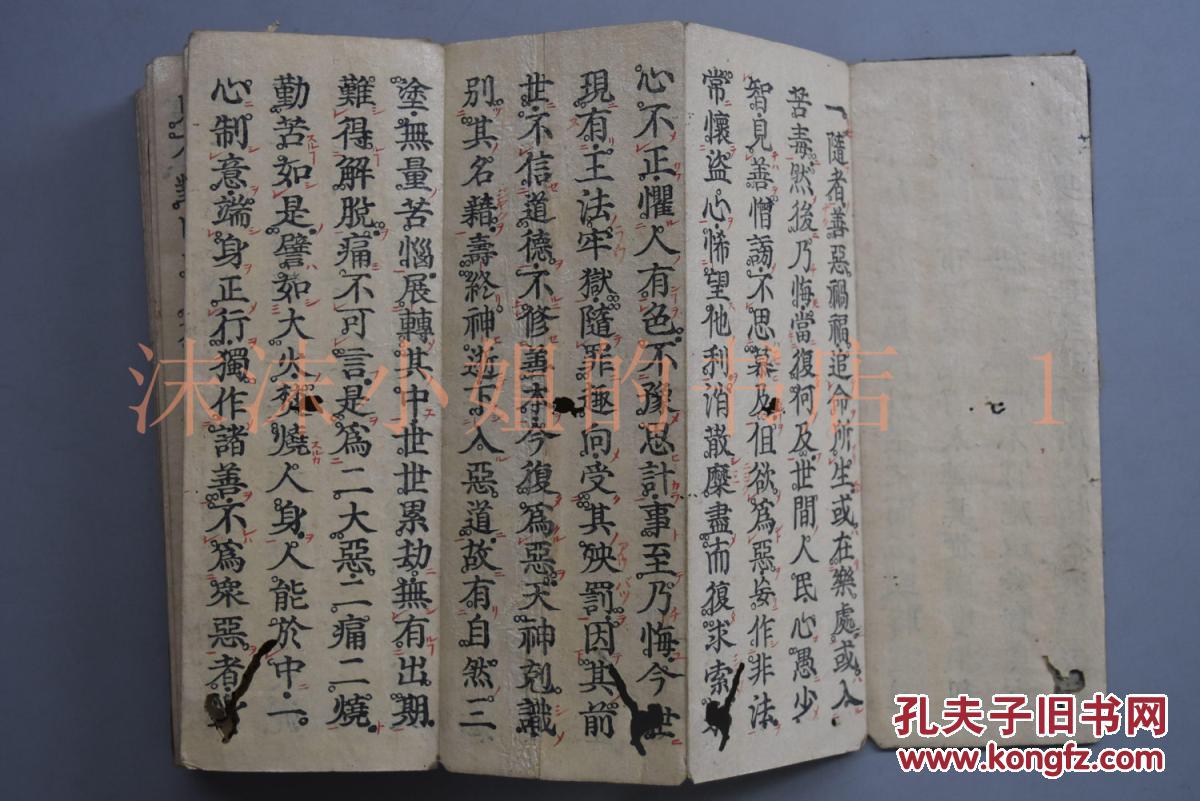 一隨者善惡禍福追命所生或在樂處或入
苦毒然後乃悔當復何及世間人民心愚少
智見善憎謗不思慕及但欲爲惡妄作非法
常懷盜心悕望他利消散糜盡而復求索
心不正懼人有色不豫思計事至乃悔今世
現有王法牢獄隨罪趣向受其殃罰因其前
世不信道德不修善本今復爲惡天神剋識
別其名籍壽終神逝下入惡道故有自然三
塗無量苦惱展轉其中世世累劫無有出期
難得解脫痛不可言是爲二大惡二痛二燒
勤苦如是譬如大火焚燒人身人能於中一
心制意端身正行獨作諸善不爲衆惡者
沫沫小姐的书店 1
孔夫子旧书网
www.kongfz.com